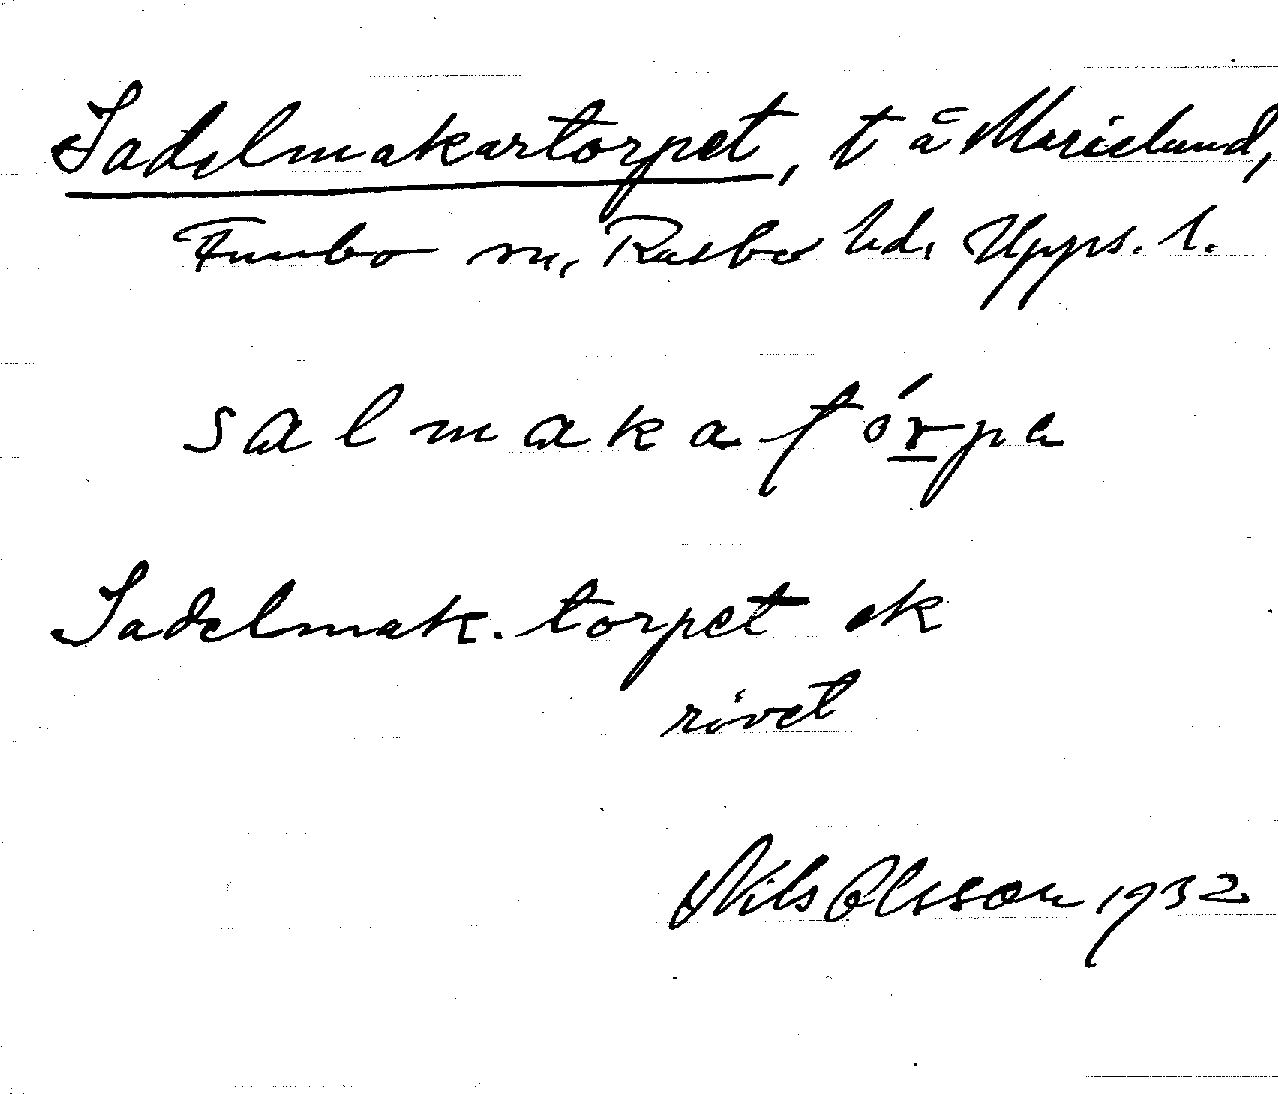 Sadelmakartorpet, t å Marielund,
Funbo sn, Rasbo hd. Upps. l.
salmakatórpa
Sadelmak. torpet ek
rivet
Nils Olsson 1932